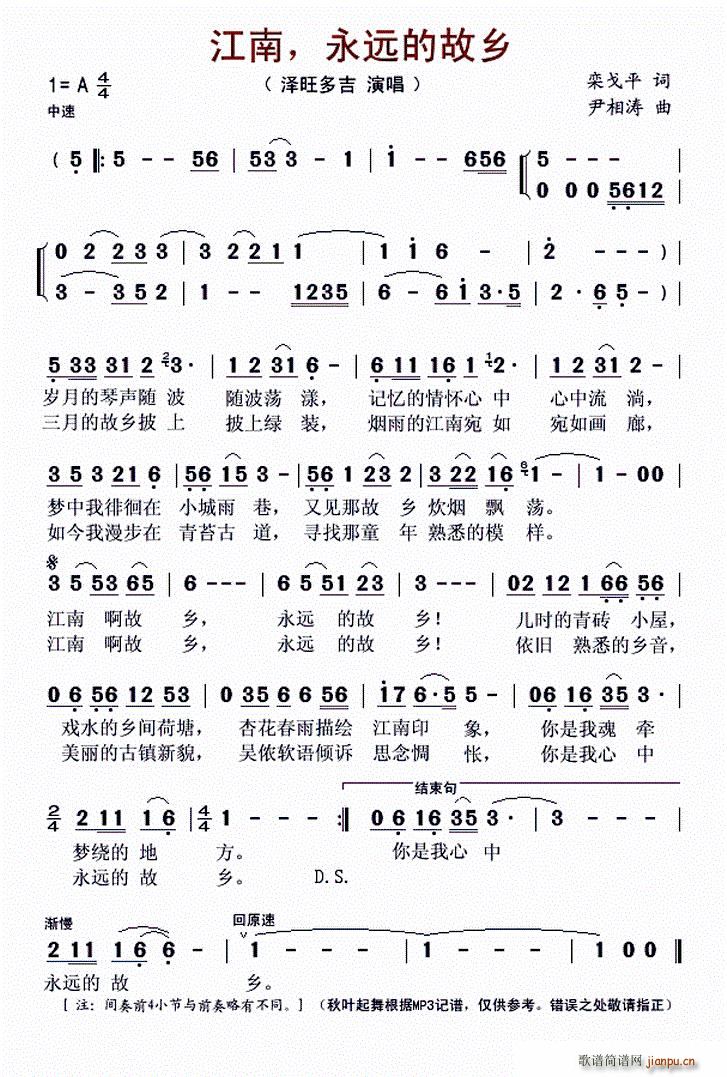 江南，永远的故乡
1= A 4/4
（ 泽旺多吉 演唱 ）
栾戈平 词
中速
尹相涛 曲
( 5 ‖: 5 - - 56 | 533 - 1 | 1 - - 656 | 5 - - - |
0 0 0 5612 |
0 2 2 3 3 | 3 2 2 1 1 | 1 1 6 - | 2 - - - ) |
3 - 3 5 2 | 1 - - 1235 | 6 - 6 1 3·5 | 2 · 6 5 - ) |
5 33 31 2 2 3· | 1 2 31 6 - | 6 11 16 1 1 2· | 1 2 31 2 - |
岁月的琴声随 波 随波荡 漾， 记忆的情怀心 中 心中流 淌，
三月的故乡披 上 披上绿 装， 烟雨的江南宛 如 宛如画 廊，
3 5 3 21 6 | 56 15 3 - | 56 1 23 2 | 3 22 2 16 6 1 - | 1 - 00 |
梦中我徘徊在 小城雨 巷， 又见那故 乡 炊烟 飘 荡。
如今我漫步在 青苔古 道， 寻找那童 年 熟悉的模 样。
3 5 53 65 | 6 - - - | 6 5 51 23 | 3 - - - | 02 12 1 66 56 |
江南 啊故 乡， 永远 的故 乡！ 儿时的青砖 小屋，
江南 啊故 乡， 永远 的故 乡！ 依旧 熟悉的乡音，
0 6 56 12 53 | 0 35 6 6 56 | 17 6·5 5 - | 06 16 35 3· |
戏水的乡间荷塘， 杏花春雨描绘 江南印 象， 你是我魂 牵
美丽的古镇新貌， 吴侬软语倾诉 思念惆 怅， 你是我心 中
结束句
2/4 2 11 1 6 | 4/4 1 - - - :‖ 06 16 35 3· | 3 - - - |
梦绕的 地 方。 你是我心 中
永远的 故 乡。 D.S.
渐慢 回原速
2 11 1 6 6 - | 1 - - - | 1 - - - | 1 0 0 ‖
永远的 故 乡。
[ 注：间奏前4小节与前奏略有不同。] (秋叶起舞根据MP3记谱，仅供参考。错误之处敬请指正)
歌谱简谱网 jianpu.cn